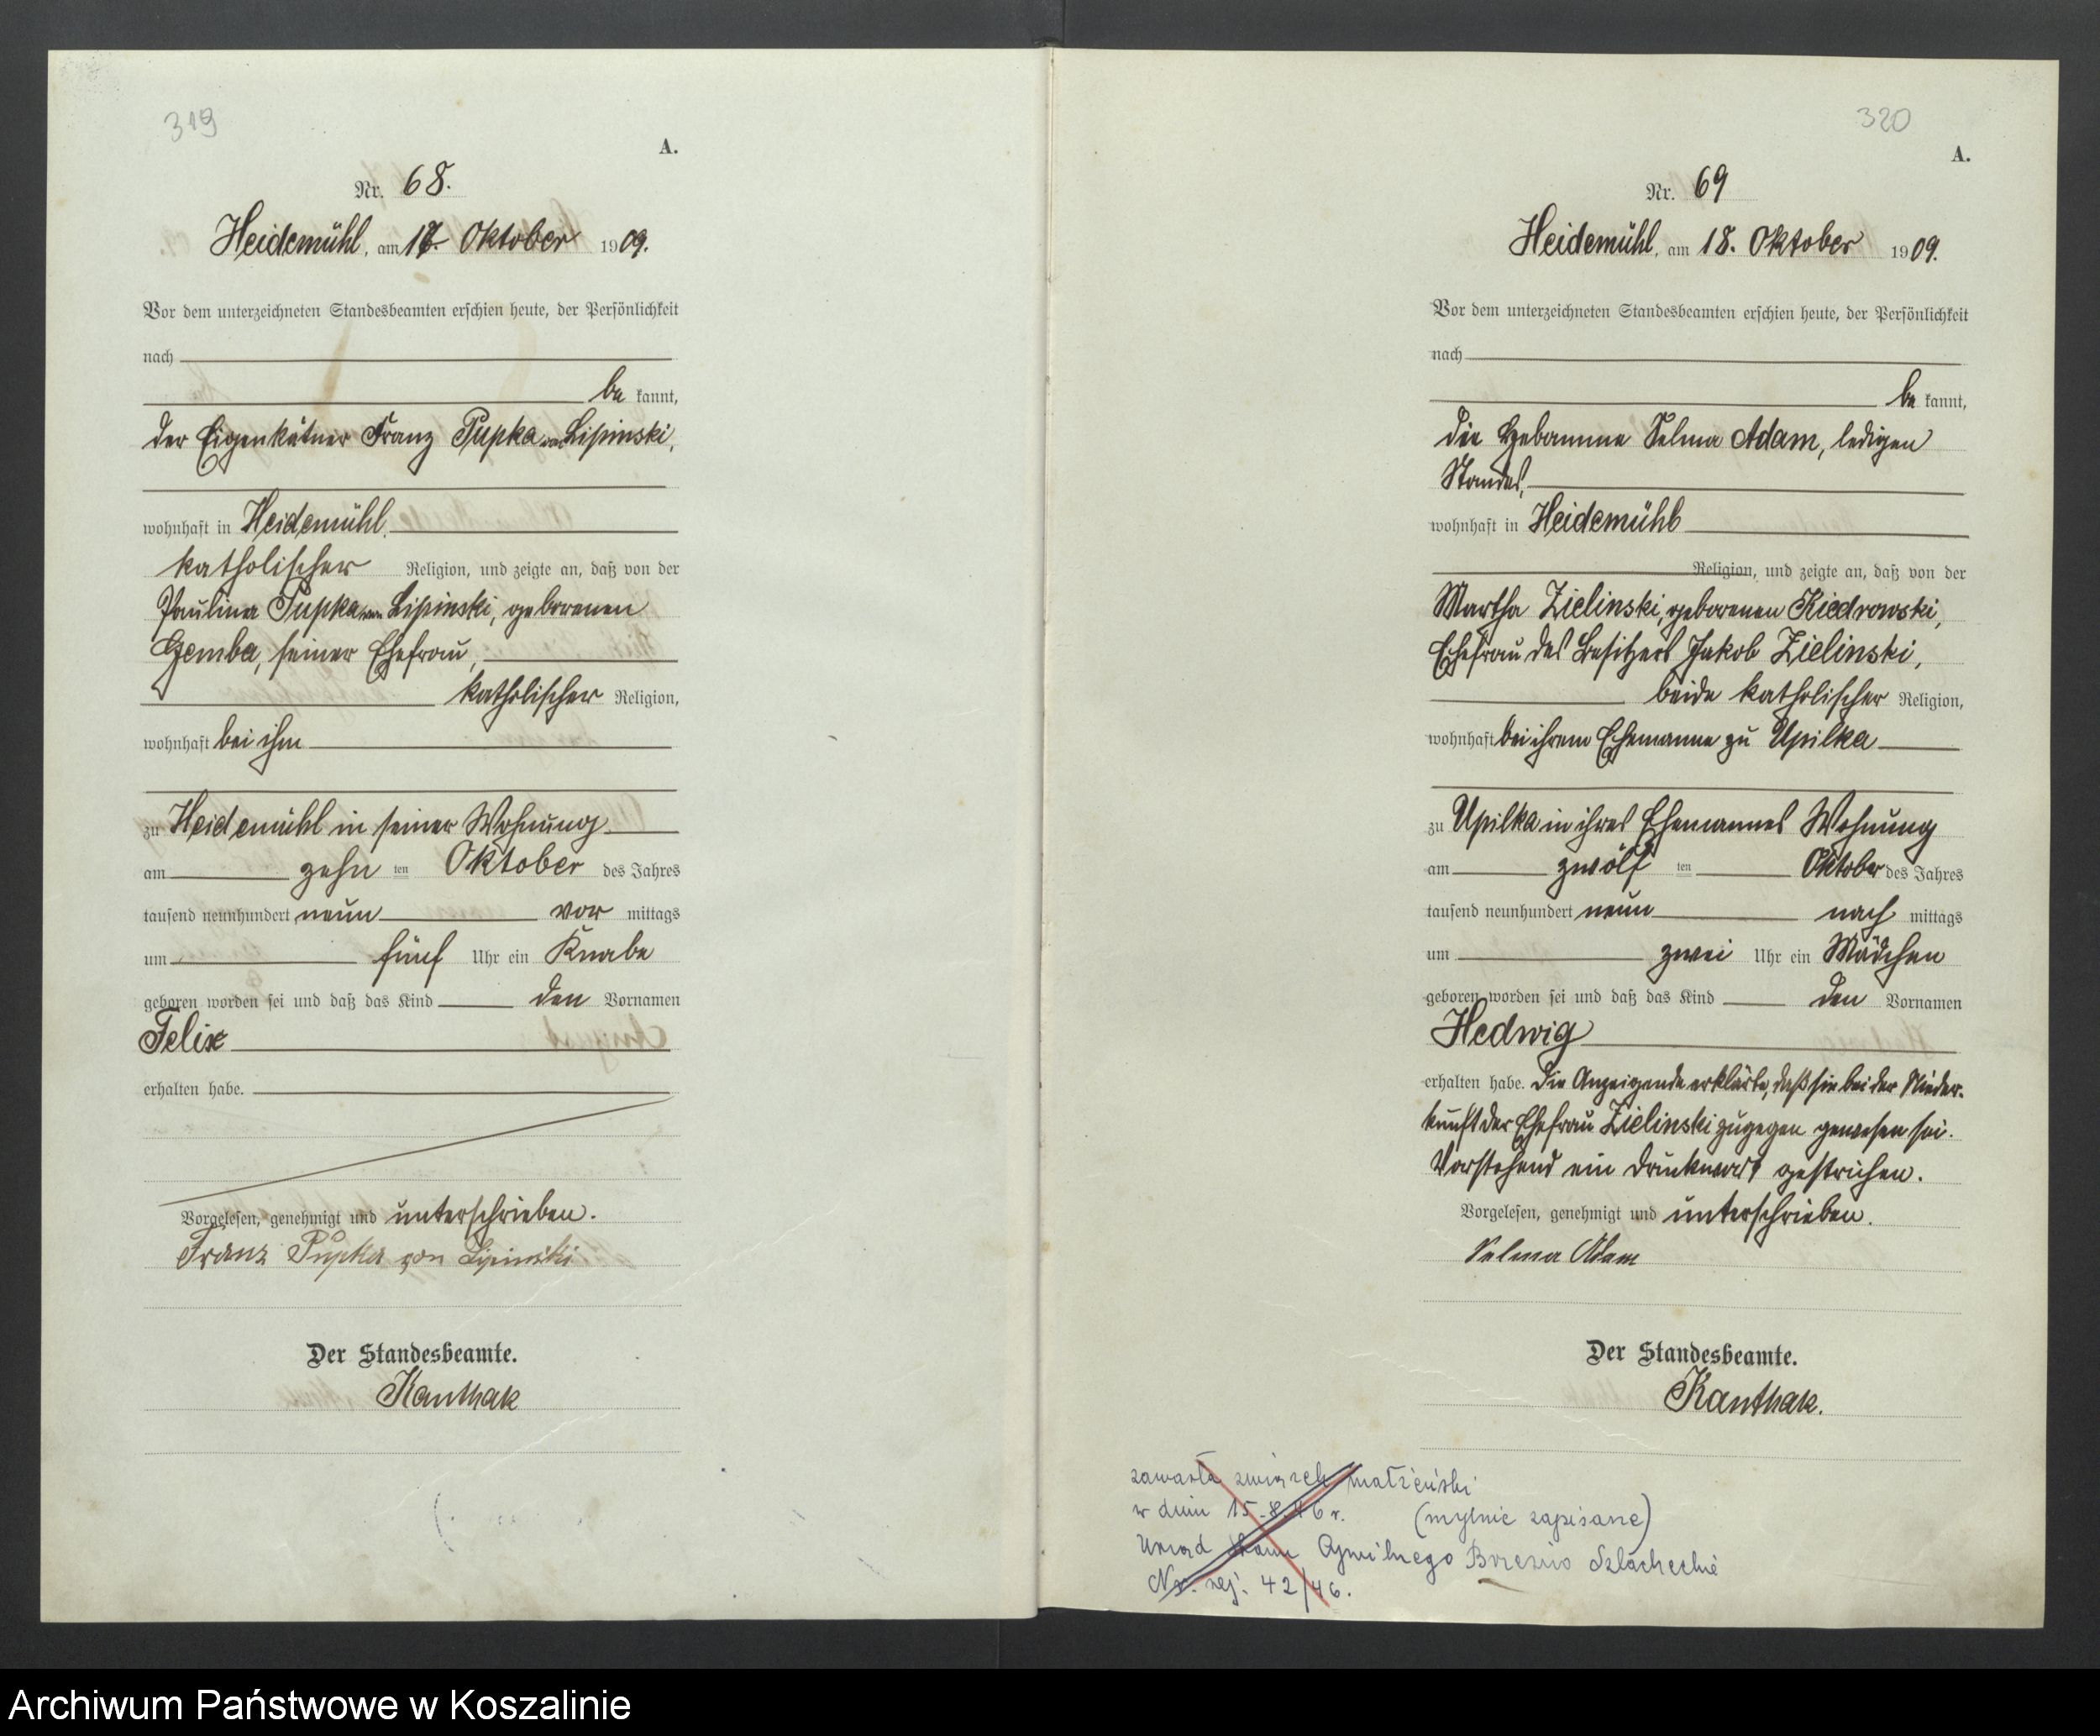 319
A.
Nr. 68.
Heidemühl, am 18. Oktober 1909.
Vor dem unterzeichneten Standesbeamten erschien heute, der Persönlichkeit
nach
be kannt,
der Eigenkätner Franz Pupka von Lipinski,
wohnhaft in Heidemühl,
katholischer Religion, und zeigte an, daß von der
Paulina Pupka von Lipinski, geborenen
Gemba, seiner Ehefrau,
katholischer Religion,
wohnhaft bei ihm
zu Heidemühl in seiner Wohnung
am zehn ten Oktober des Jahres
tausend neunhundert neun vor mittags
um fünf Uhr ein Knabe
geboren worden sei und daß das Kind den Vornamen
Felix
erhalten habe.
Vorgelesen, genehmigt und unterschrieben.
Franz Pupka von Lipinski
Der Standesbeamte.
Kanthak
320
A.
Nr. 69
Heidemühl, am 18. Oktober 1909.
Vor dem unterzeichneten Standesbeamten erschien heute, der Persönlichkeit
nach
be kannt,
die Hebamme Selma Adam, ledigen
Standes,
wohnhaft in Heidemühl
Religion, und zeigte an, daß von der
Martha Zielinski, geborenen Kiedrowski,
Ehefrau des Besitzers Jakob Zielinski,
beide katholischer Religion,
wohnhaft bei ihrem Ehemanne zu Upilka
zu Upilka in ihres Ehemannes Wohnung
am zwölf ten Oktober des Jahres
tausend neunhundert neun nach mittags
um zwei Uhr ein Mädchen
geboren worden sei und daß das Kind den Vornamen
Hedwig
erhalten habe. Die Anzeigende erklärte, daß sie bei der Nieder-
kunft der Ehefrau Zielinski zugegen gewesen sei.
Vorstehend ein Druckwort gestrichen.
Vorgelesen, genehmigt und unterschrieben.
Selma Adam
Der Standesbeamte.
Kanthak.
zawarła związek małżeński
w dniu 15.8.46 r. (mylnie zapisane)
Urząd Stanu Cywilnego Brzeźno Szlacheckie
Nr. rej. 42/46.
Archiwum Państwowe w Koszalinie